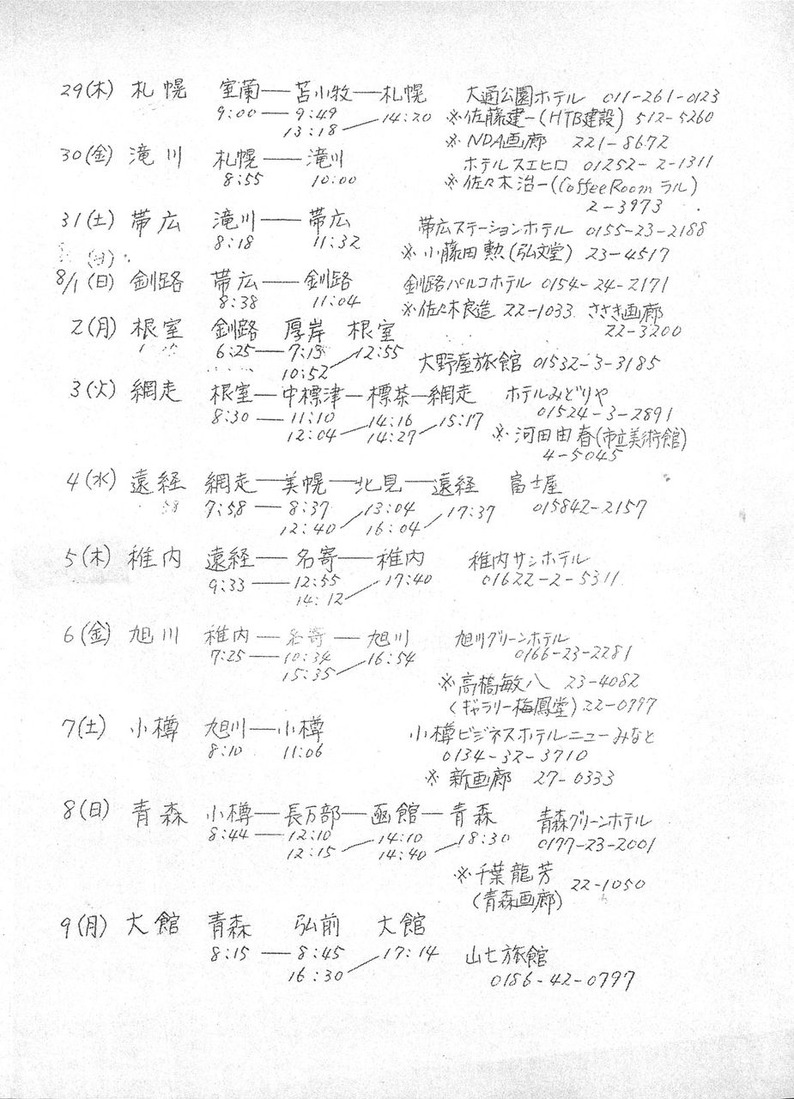 29(木) 札幌 室蘭―苫小牧―札幌 大通公園ホテル 011-261-0123
9:00―9:49 14:20 ※佐藤建一(HTB建設) 512-5260
13:18
※NDA画廊 221-8672
30(金) 滝川 札幌―滝川 ホテルスエヒロ 01252-2-1311
8:55 10:00 ※佐々木治一(Coffee Room ラル)
2-3973
31(土) 帯広 滝川―帯広 帯広ステーションホテル 0155-23-2188
8:18 11:32 ※小藤田勲(弘文堂) 23-4517
8/1(日) 釧路 帯広―釧路 釧路パルコホテル 0154-24-2171
8:38 11:04 ※佐々木良造 22-1033 ささき画廊
22-3200
2(月) 根室 釧路 厚岸 根室
6:25―7:13 12:55
10:52 大野屋旅館 01532-3-3185
3(火) 網走 根室―中標津―標茶―網走 ホテルみどりや
8:30―11:10 14:16 15:17 01524-3-2891
12:04 14:27 ※河田由春(市立美術館)
4-5045
4(水) 遠経 網走―美幌―北見―遠経 富士屋
7:58―8:37 13:04 17:37 015842-2157
12:40 16:04
5(木) 稚内 遠経―名寄―稚内 稚内サンホテル
9:33―12:55 17:40 01622-2-5311
14:12
6(金) 旭川 稚内―名寄―旭川 旭川グリーンホテル
7:25―10:34 16:54 0166-23-2281
15:35
※高橋敏八 23-4082
(ギャラリー梅鳳堂) 22-0797
7(土) 小樽 旭川―小樽 小樽ビジネスホテルニューみなと
8:10 11:06 0134-32-3710
※新画廊 27-0333
8(日) 青森 小樽―長万部―函館―青森 青森グリーンホテル
8:44―12:10 14:10 18:30 0177-23-2001
12:15 14:40
※千葉龍芳 22-1050
(青森画廊)
9(月) 大館 青森 弘前 大館
8:15―8:45 17:14 山七旅館
16:30 0186-42-0797